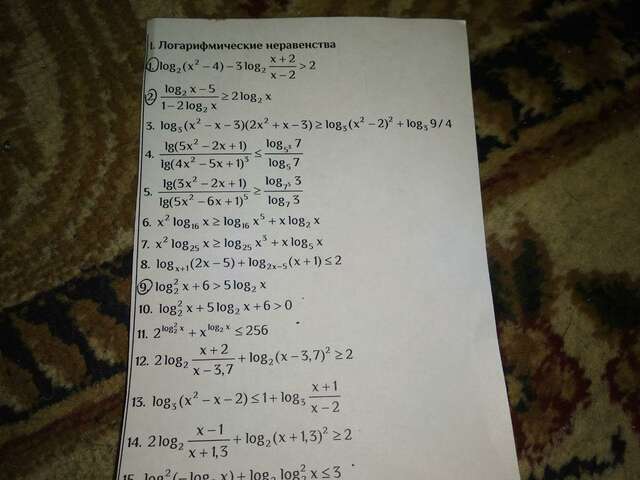 I. Логарифмические неравенства
1. log₂(x² − 4) − 3log₂ (x + 2)/(x − 2) > 2
2. (log₂ x − 5)/(1 − 2log₂ x) ≥ 2log₂ x
3. log₃(x² − x − 3)(2x² + x − 3) ≥ log₃(x² − 2)² + log₃ 9/4
4. lg(5x² − 2x + 1)/lg(4x² − 5x + 1)³ ≤ log₅³ 7/log₅ 7
5. lg(3x² − 2x + 1)/lg(5x² − 6x + 1)⁵ ≥ log₇⁵ 3/log₇ 3
6. x² log₁₆ x ≥ log₁₆ x⁵ + x log₂ x
7. x² log₂₅ x ≥ log₂₅ x³ + x log₅ x
8. logₓ₊₁(2x − 5) + log₂ₓ₋₅(x + 1) ≤ 2
9. log₂² x + 6 > 5log₂ x
10. log₂² x + 5log₂ x + 6 > 0
11. 2^(log₂² x) + x^(log₂ x) ≤ 256
12. 2log₂ (x + 2)/(x − 3,7) + log₂(x − 3,7)² ≥ 2
13. log₃(x² − x − 2) ≤ 1 + log₃ (x + 1)/(x − 2)
14. 2log₂ (x − 1)/(x + 1,3) + log₂(x + 1,3)² ≥ 2